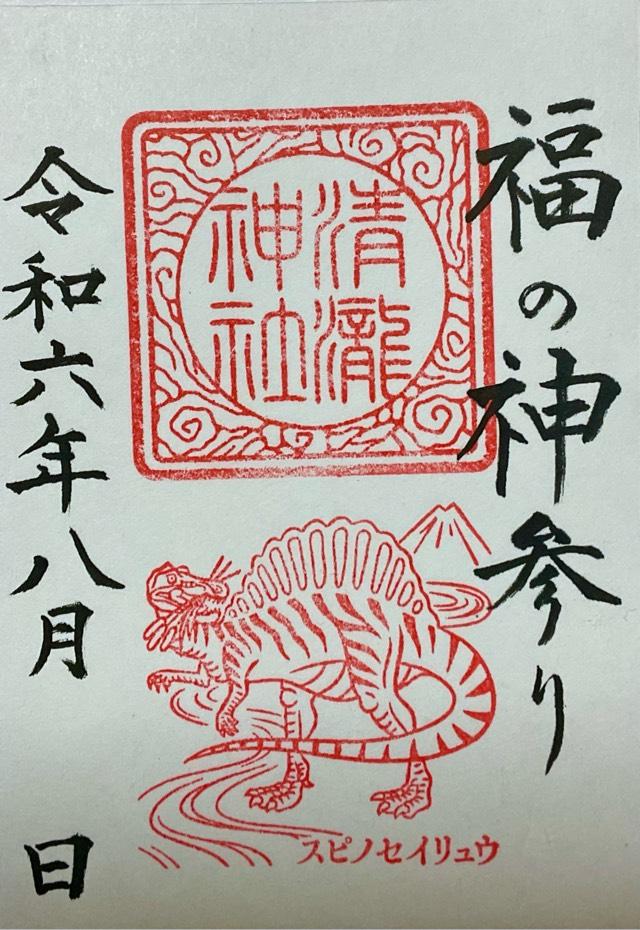 福の神参り
清瀧
神社
令和六年八月　日
スピノセイリュウ